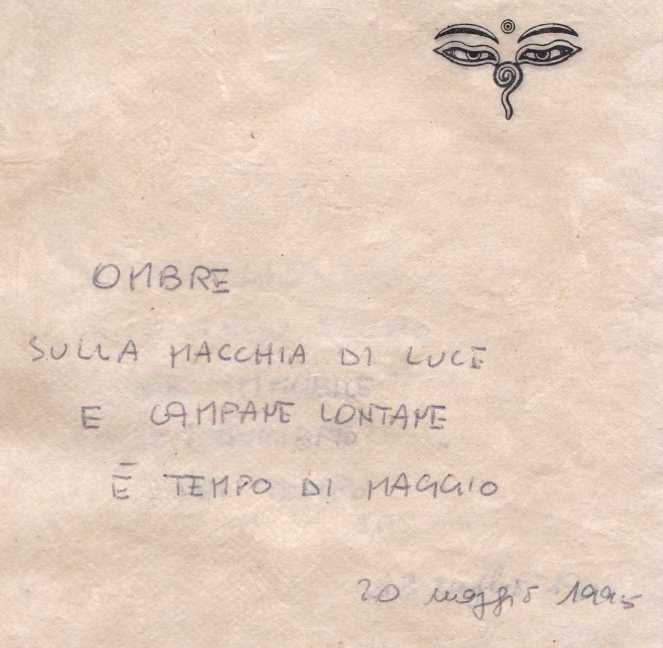 OMBRE
SULLA MACCHIA DI LUCE
E CAMPANE LONTANE
È TEMPO DI MAGGIO
20 maggio 1995